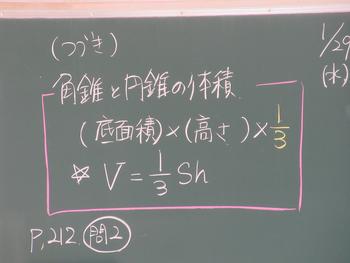 (つづき)
1/29
(水)
角錐と円錐の体積
(底面積)×(高さ)×1/3
☆ V=1/3 Sh
P,212 問2